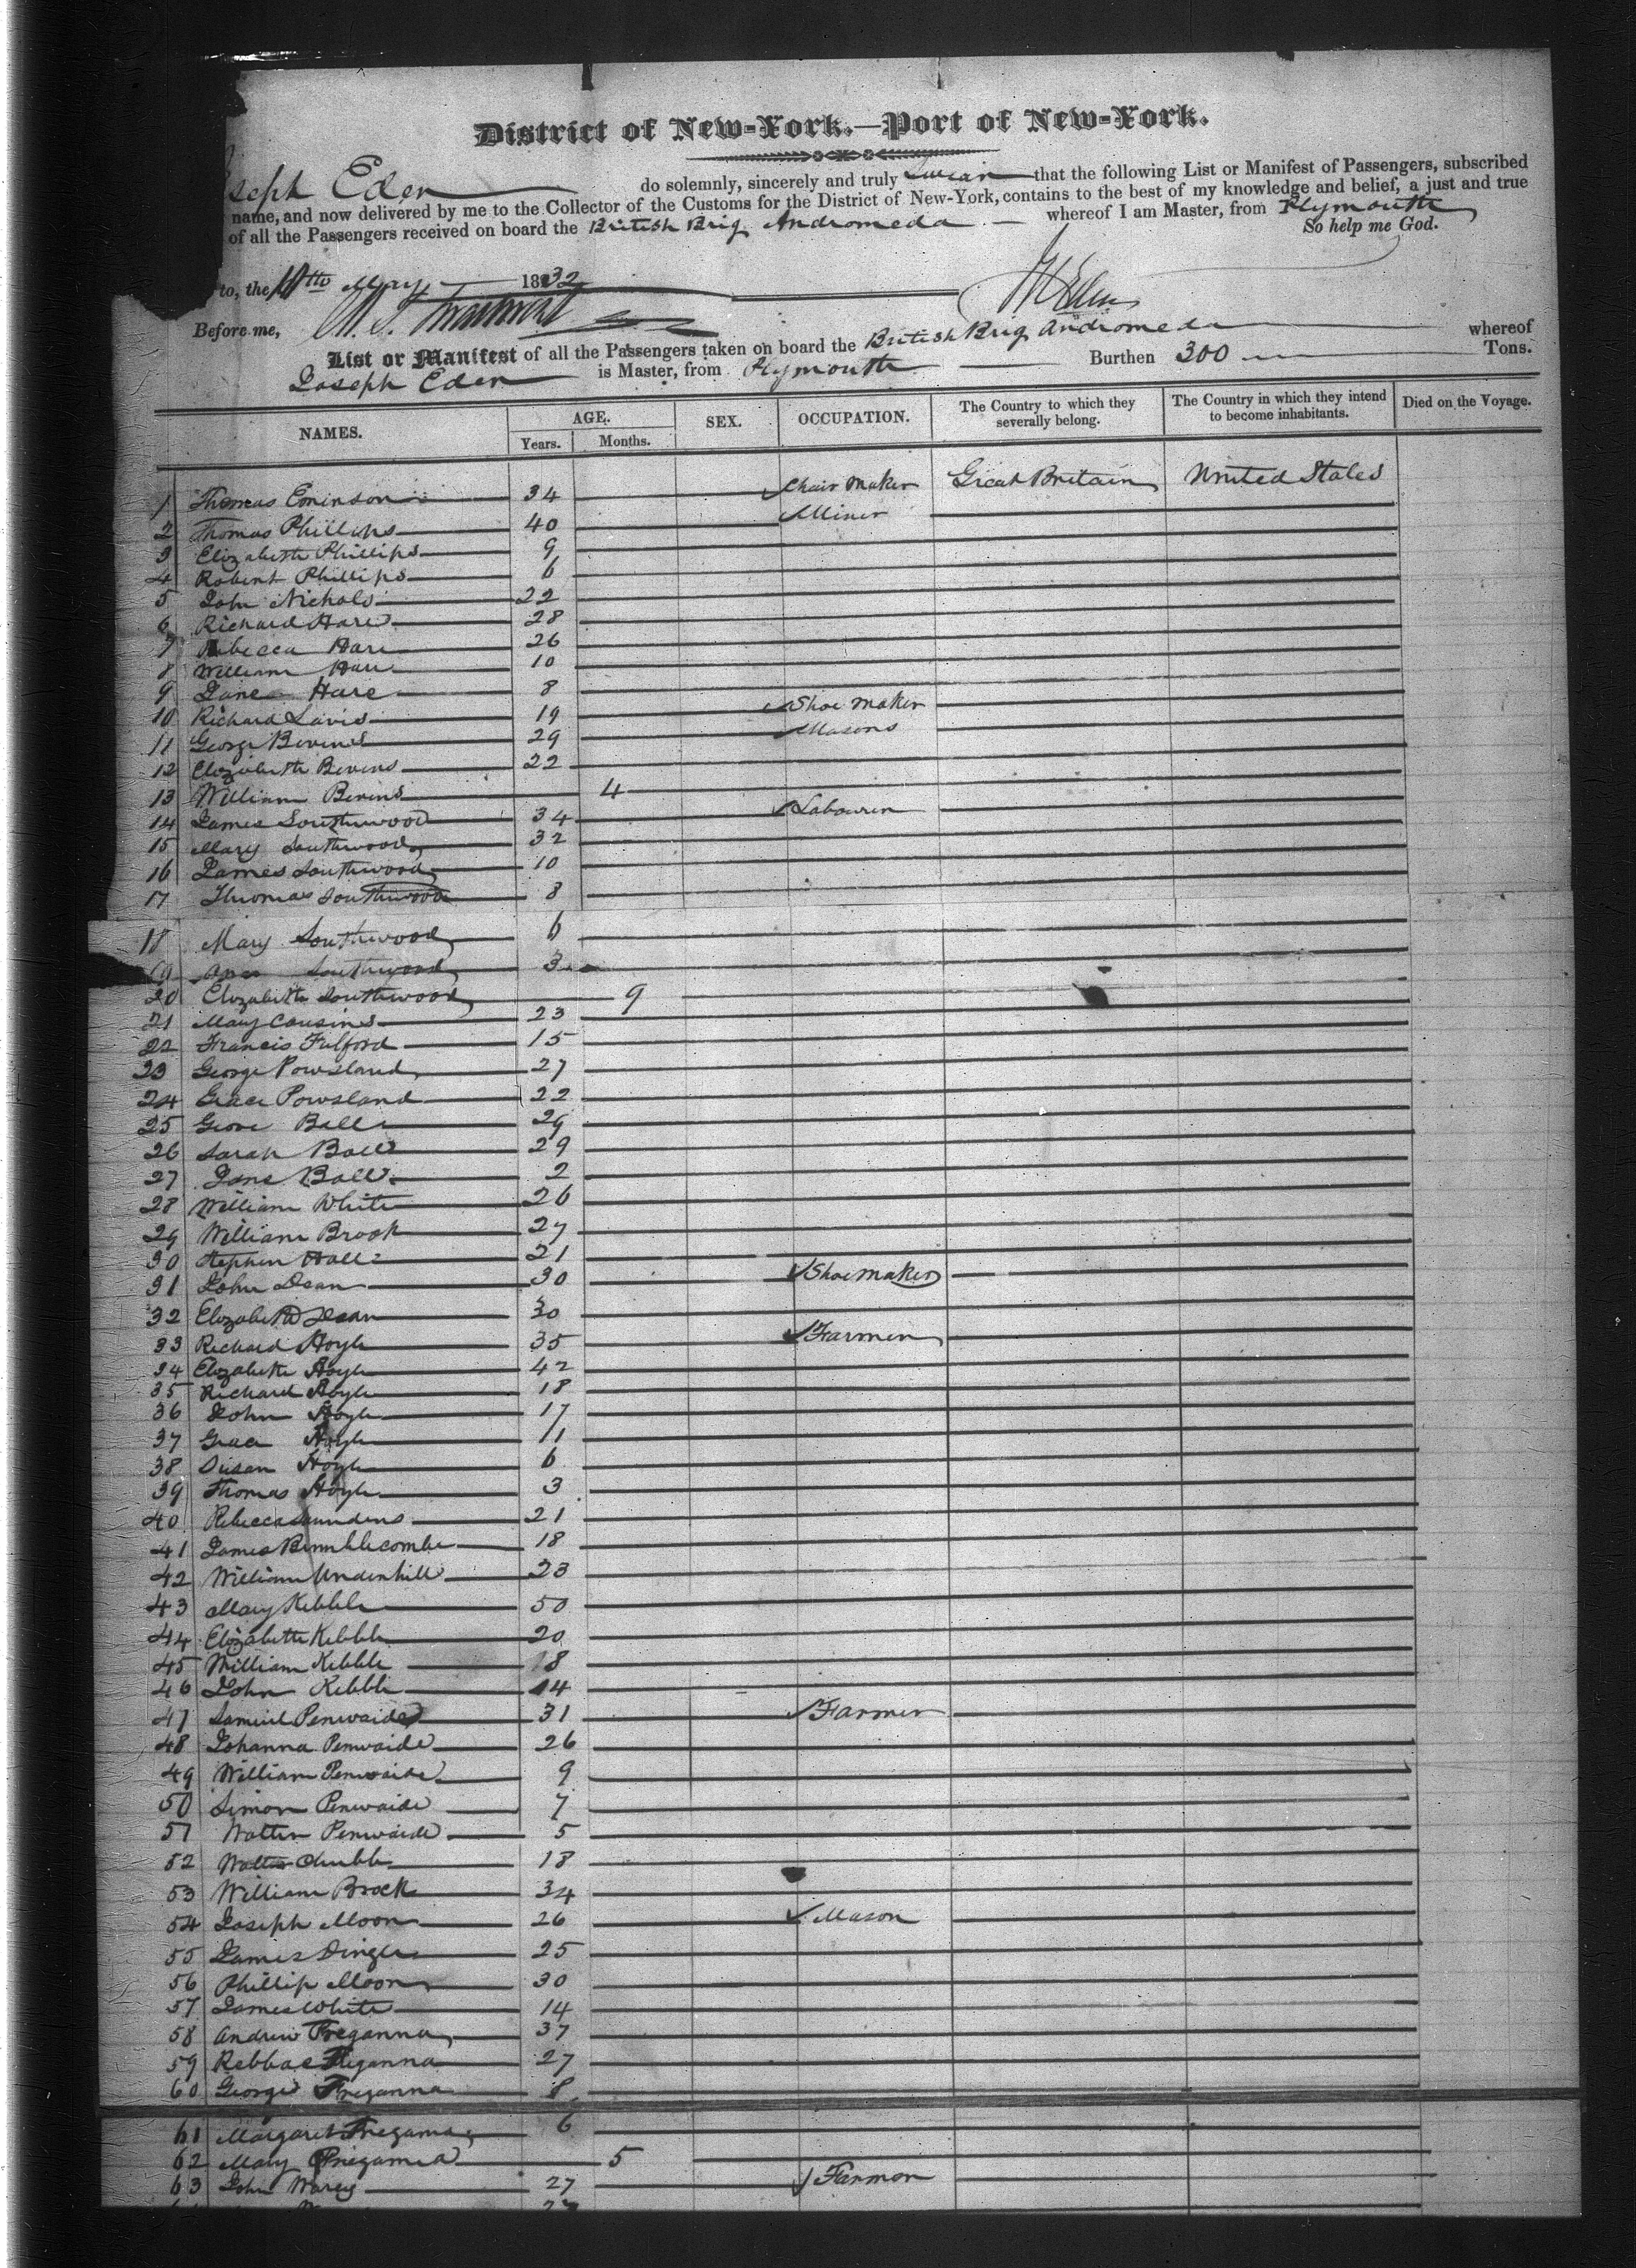 District of New-York.—Port of New-York.
seph Eden do solemnly, sincerely and truly swear that the following List or Manifest of Passengers, subscribed
name, and now delivered by me to the Collector of the Customs for the District of New-York, contains to the best of my knowledge and belief, a just and true
of all the Passengers received on board the British Brig Andromeda whereof I am Master, from Plymouth
So help me God.
to, the May 1832
Before me,
List or Manifest of all the Passengers taken on board the British Brig Andromeda whereof
Joseph Eden is Master, from Plymouth Burthen 300 Tons.
NAMES. AGE. SEX. OCCUPATION. The Country to which they severally belong. The Country in which they intend to become inhabitants. Died on the Voyage.
Years. Months.
1 Thomas Eminson 34 Chair Maker Great Britain United States
2 Thomas Phillips 40 Miner
3 Elizabeth Phillips 9
4 Robert Phillips 6
5 John Nichols 22
6 Richard Hare 28
7 Rebecca Hare 26
8 William Hare 10
9 Jane Hare 8
10 Richard Lavis 19 Shoe Maker
11 George Bevens 29 Masons
12 Elizabeth Bevens 22
13 William Bevens 4
14 James Southwood 34 Labourer
15 Mary Southwood 32
16 James Southwood 10
17 Thomas Southwood 8
18 Mary Southwood 6
19 Ann Southwood 3
20 Elizabeth Southwood 9
21 Mary Cousins 23
22 Francis Fulford 15
23 George Powsland 27
24 Grace Powsland 22
25 Ball 29
26 Sarah Ball 29
27 Jane Ball 2
28 William White 26
29 William Brook 27
30 Stephen Hall 21
31 John Dean 30 Shoemaker
32 Elizabeth Dean 30
33 Richard Hoyle 35 Farmer
34 Elizabeth Hoyle 42
35 Richard Hoyle 18
36 John Hoyle 17
37 Grace Hoyle 11
38 Susan Hoyle 6
39 Thomas Hoyle 3
40 Rebecca Saunders 21
41 James Brimblecombe 18
42 William Underhill 23
43 Mary Kebble 50
44 Elizabeth Kebble 20
45 William Kebble 18
46 John Kebble 14
47 Samuel Penwaide 31 Farmer
48 Johanna Penwaide 26
49 William Penwaide 9
50 Simon Penwaide 7
51 Walter Penwaide 5
52 Walter Chubb 18
53 William Brock 34
54 Joseph Moon 26 Mason
55 James Dingle 25
56 Phillip Moon 30
57 James White 14
58 Andrew Treganna 37
59 Rebbac Treganna 27
60 George Treganna 8
61 Margaret Tregamna 6
62 Mary 5
63 John Warey 27 Farmer